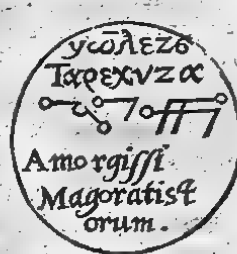 γωλεζϭ
Ταρεχνζα
Amorgiſſi.
Magoratisꝗ
orum.